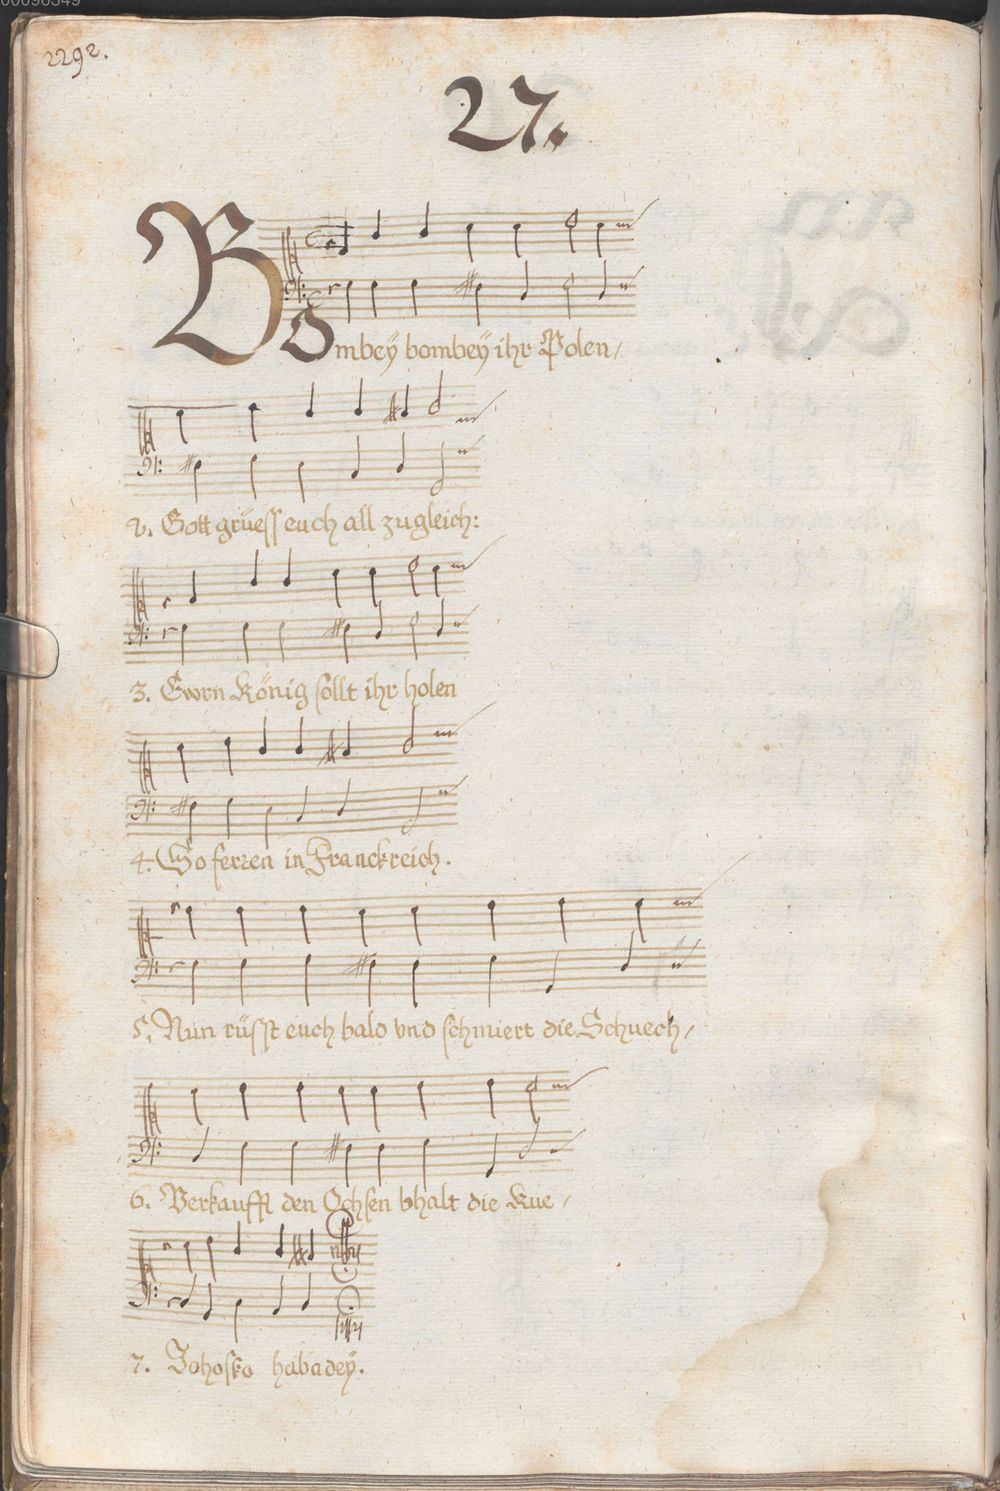 00096349
2292.
27.
BOmbeÿ bombeÿ ihr Polen/
2. Gott grüess euch all zugleich:
3. Ewrn König sollt ihr holen
4. So ferren in Franckreich.
5. Nun rüsst euch bald vnd schmiert die Schuech/
6. Verkaufft den Ochsen bhalt die Kue/
7. Johosko habadeÿ.